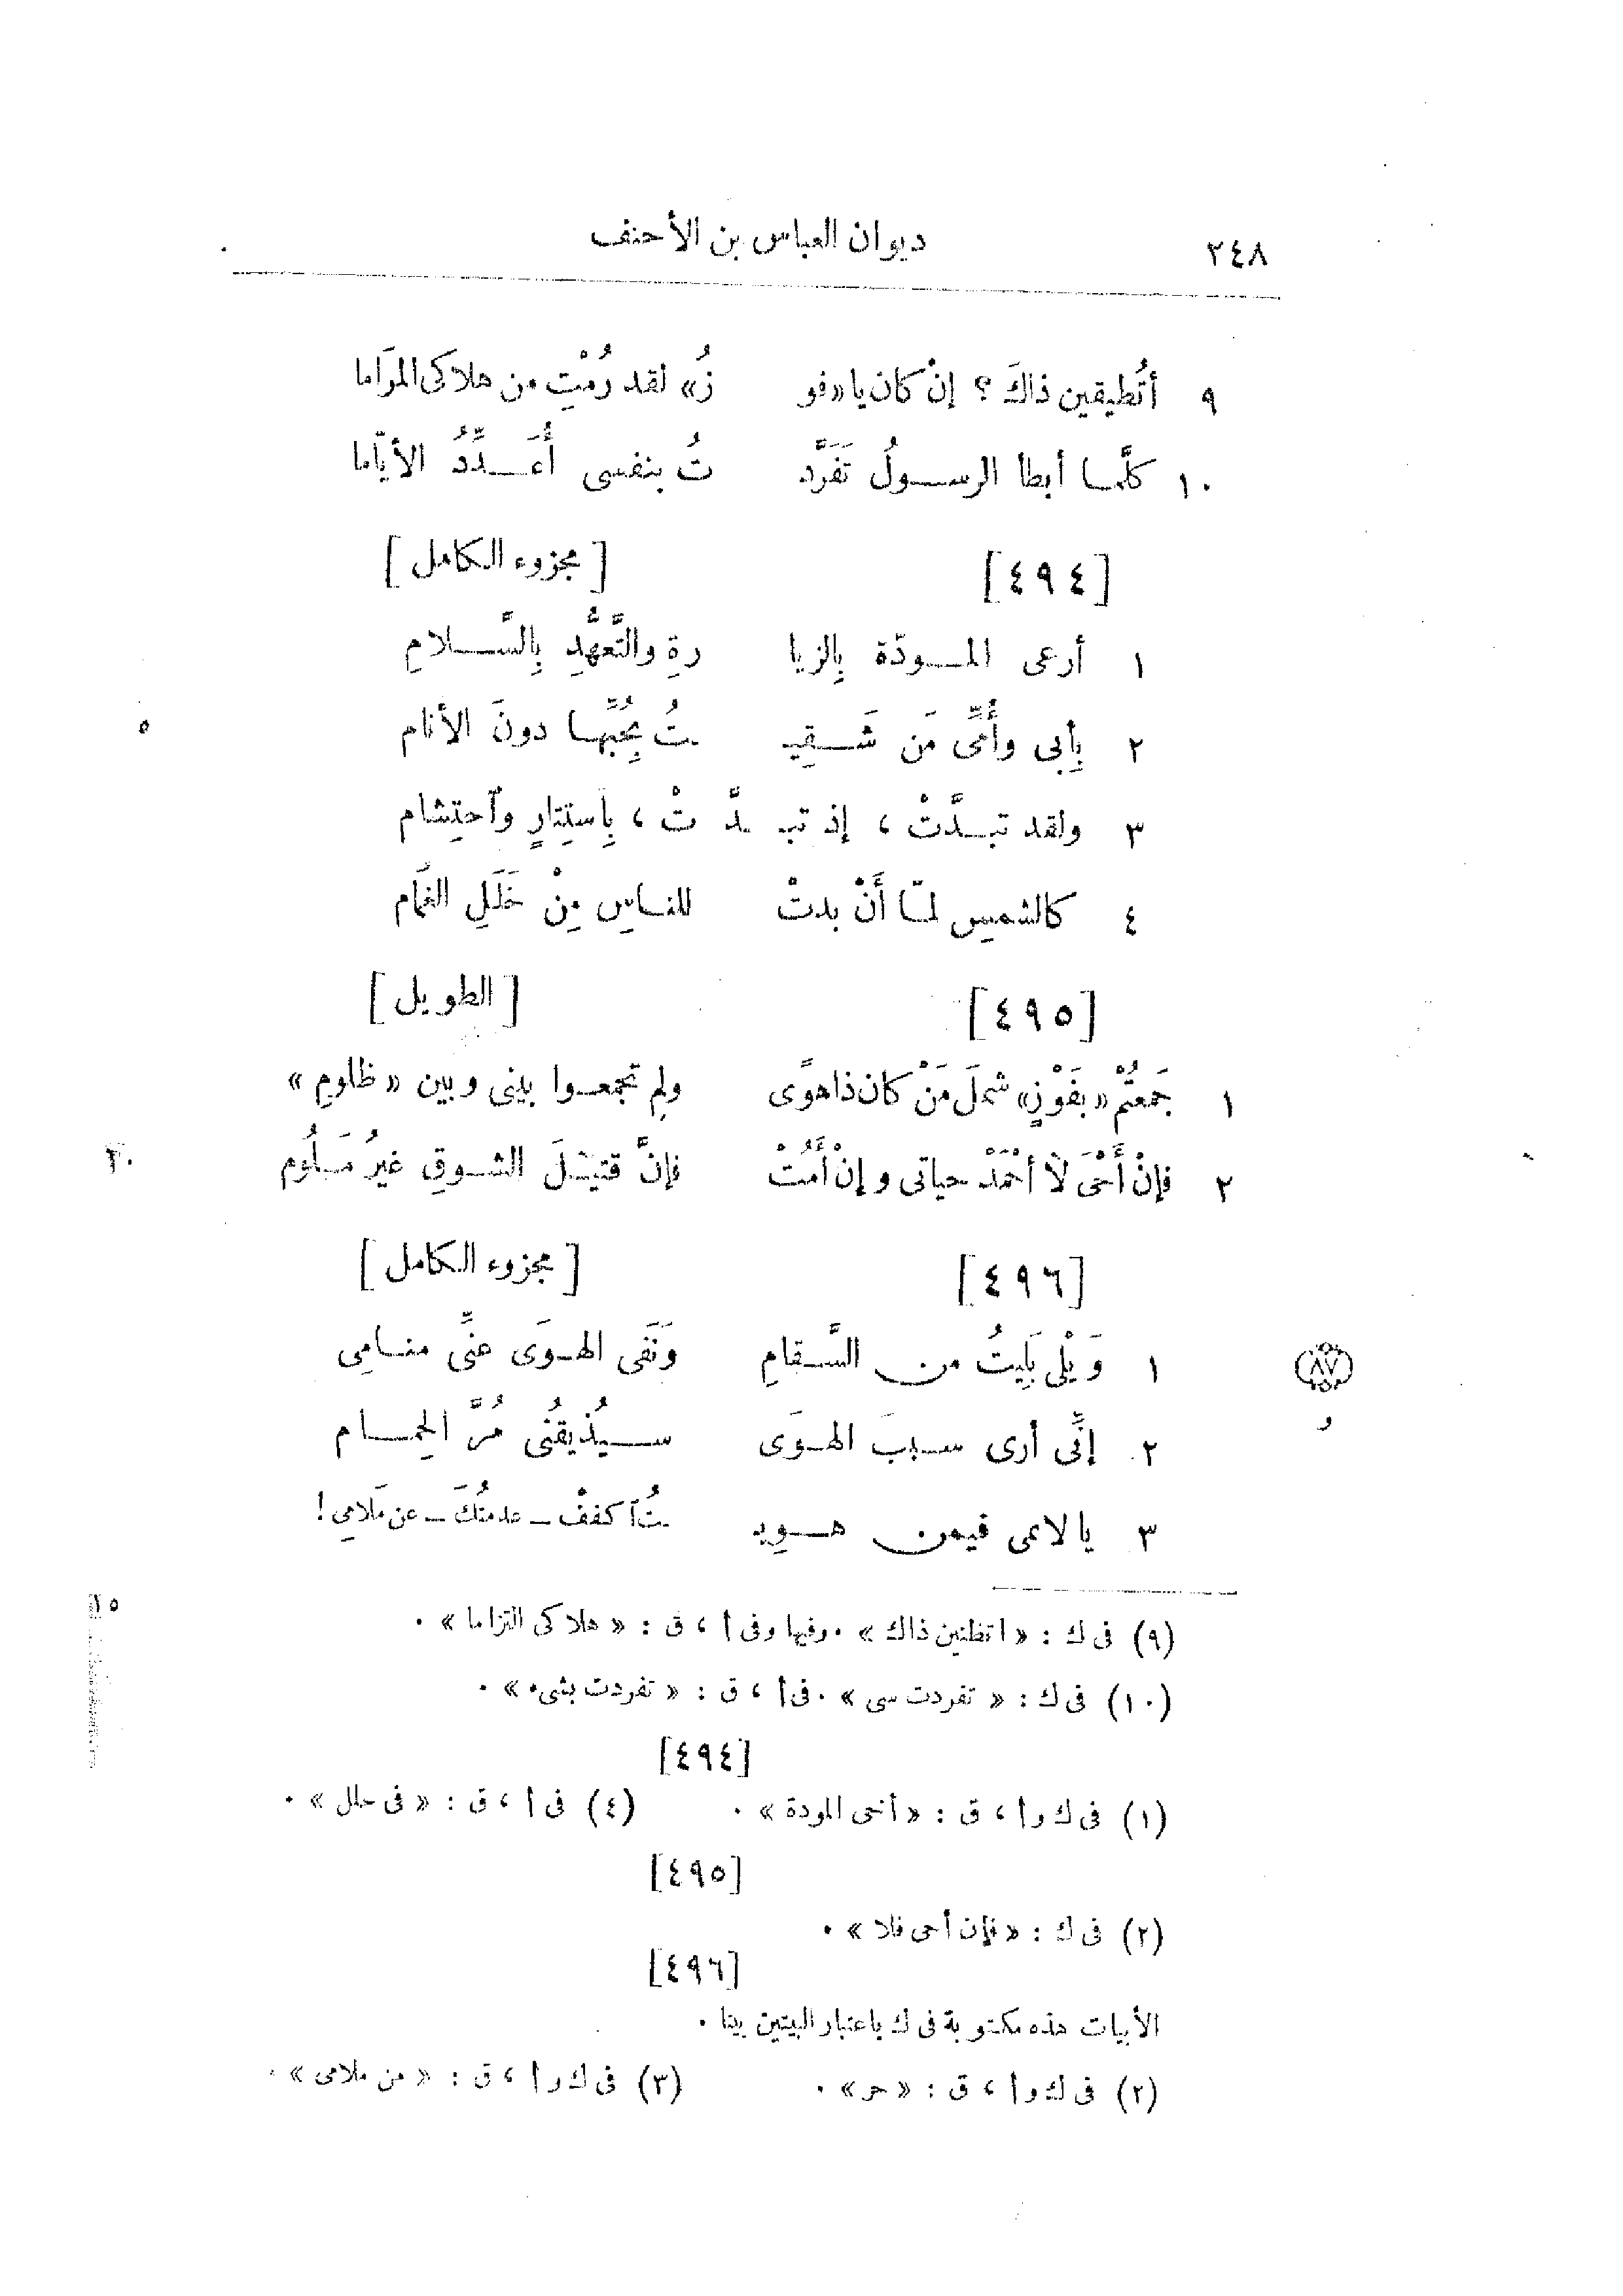 ٢٤٨ ديوان العباس بن الأحنف
٩ أتُطيقين ذاكَ ؟ إنْ كان يا «فو زُ» لقد رُمْتِ من هلاكى المَرَاما
١٠ كلَّما أبطأ الرسولُ تَفَرَّد تُ بنفسى أُعَدِّدُ الأيّاما
[٤٩٤] [مجزوء الكامل]
١ أرعى المودّة بِالزيا رةِ والتَّعهُّدِ بِالسَّلامِ
٢ بِأبى وأُمِّى مَن شَقِيـ ـتُ بِحُبِّها دونَ الأنام
٣ ولقد تبدَّتْ ، إذ تبـ ـدَّتْ ، بِاَستِتارٍ وآحتِشام
٤ كالشمسِ لمّا أَنْ بدتْ للناسِ مِنْ خَلَلِ الغَمام
[٤٩٥] [الطويل]
١ جَمعتُمْ «بفَوْزٍ» شملَ مَنْ كان ذا هوًى ولِم تجمعوا بينى وبين «ظلومِ»
٢ فإنْ أَحْىَ لَا أحْمَدْ حياتى وإنْ أَمُتْ فإنَّ قتيلَ الشوقِ غيرُ مَلُومِ
[٤٩٦] [مجزوء الكامل]
١ وَيْلى بَلِيتُ من السَّقامِ وَنَفَى الهوَى عنِّى منامِى
٨٧
و
٢ إنِّى أرى سببَ الهوَى سيُذيقُنى مُرَّ الحِمام
٣ يا لائمى فيمن هويـ ـتُ آكففْ – عدمتُكَ – عن مَلامِى !
(٩) فى ك : « اتظنين ذاك » . وفيها وفى أ ، ق : « هلاكى التزاما » .
(١٠) فى ك : « تفردت سى » . فى أ ، ق : « تفردت بشىء » .
[٤٩٤]
(١) فى ك وأ ، ق : « أخى المودة » . (٤) فى أ ، ق : « فى حلل » .
[٤٩٥]
(٢) فى ك : « فإن أحى فلا » .
[٤٩٦]
الأبيات هذه مكتوبة فى ك باعتبار البيتين بيتا .
(٢) فى ك وأ ، ق : « حر » . (٣) فى ك وأ ، ق : « من ملامى » .
٥
١٥